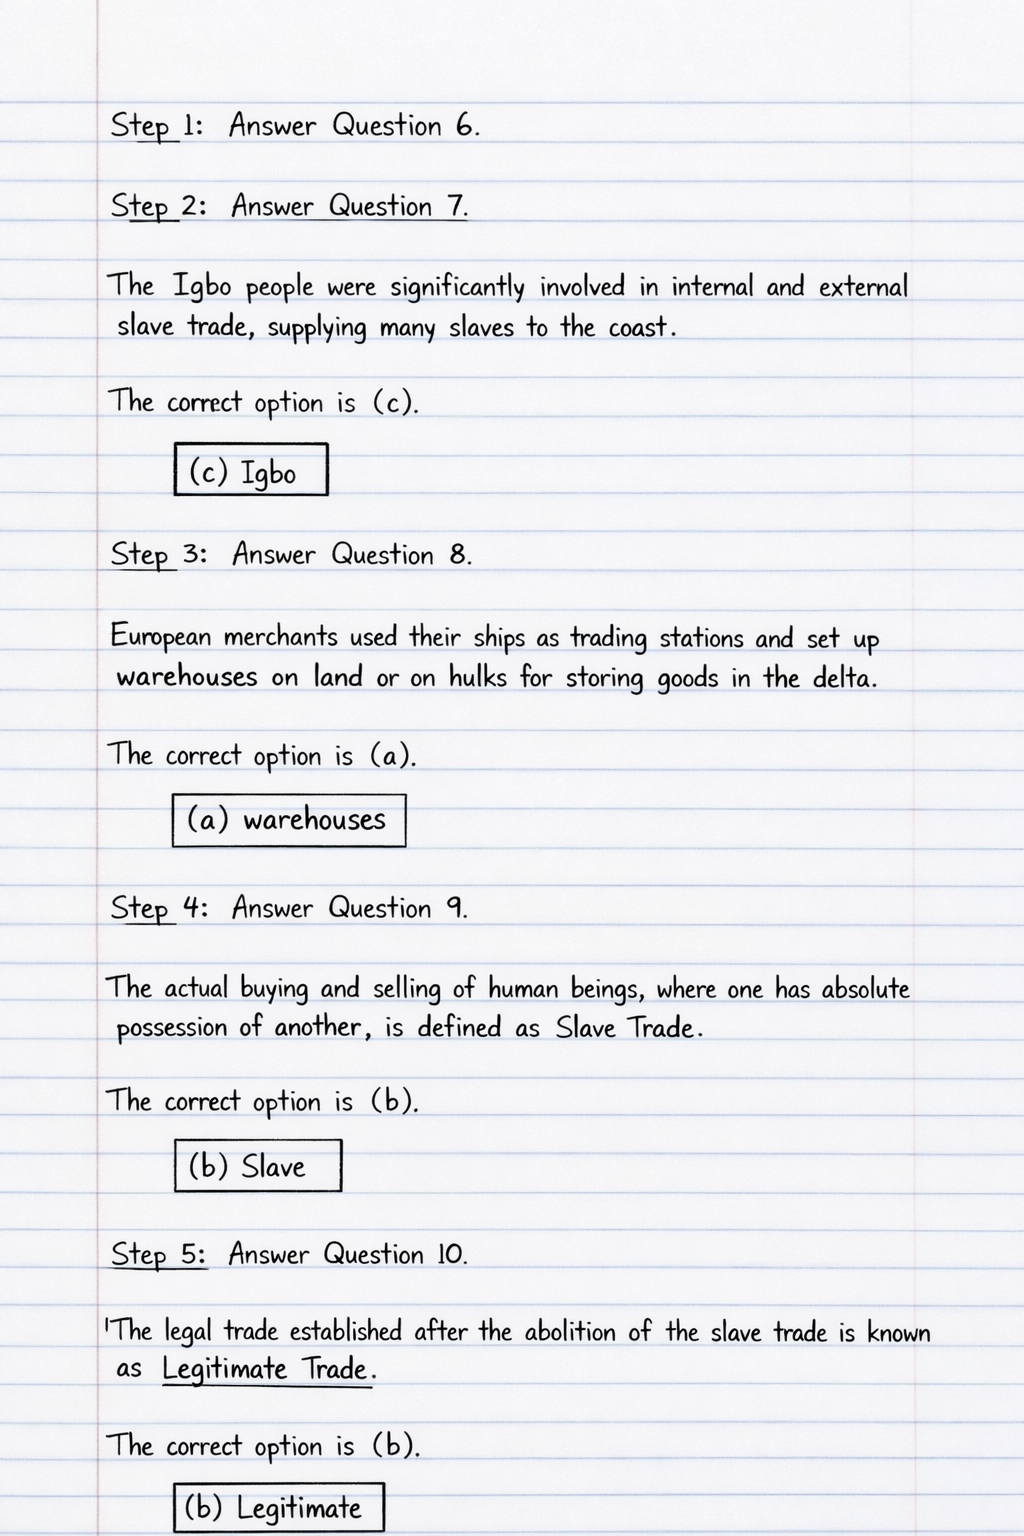 Step 1: Answer Question 6.
Step 2: Answer Question 7.
The Igbo people were significantly involved in internal and external
slave trade, supplying many slaves to the coast.
The correct option is (c).
(c) Igbo
Step 3: Answer Question 8.
European merchants used their ships as trading stations and set up
warehouses on land or on hulks for storing goods in the delta.
The correct option is (a).
(a) warehouses
Step 4: Answer Question 9.
The actual buying and selling of human beings, where one has absolute
possession of another, is defined as Slave Trade.
The correct option is (b).
(b) Slave
Step 5: Answer Question 10.
The legal trade established after the abolition of the slave trade is known
as Legitimate Trade.
The correct option is (b).
(b) Legitimate